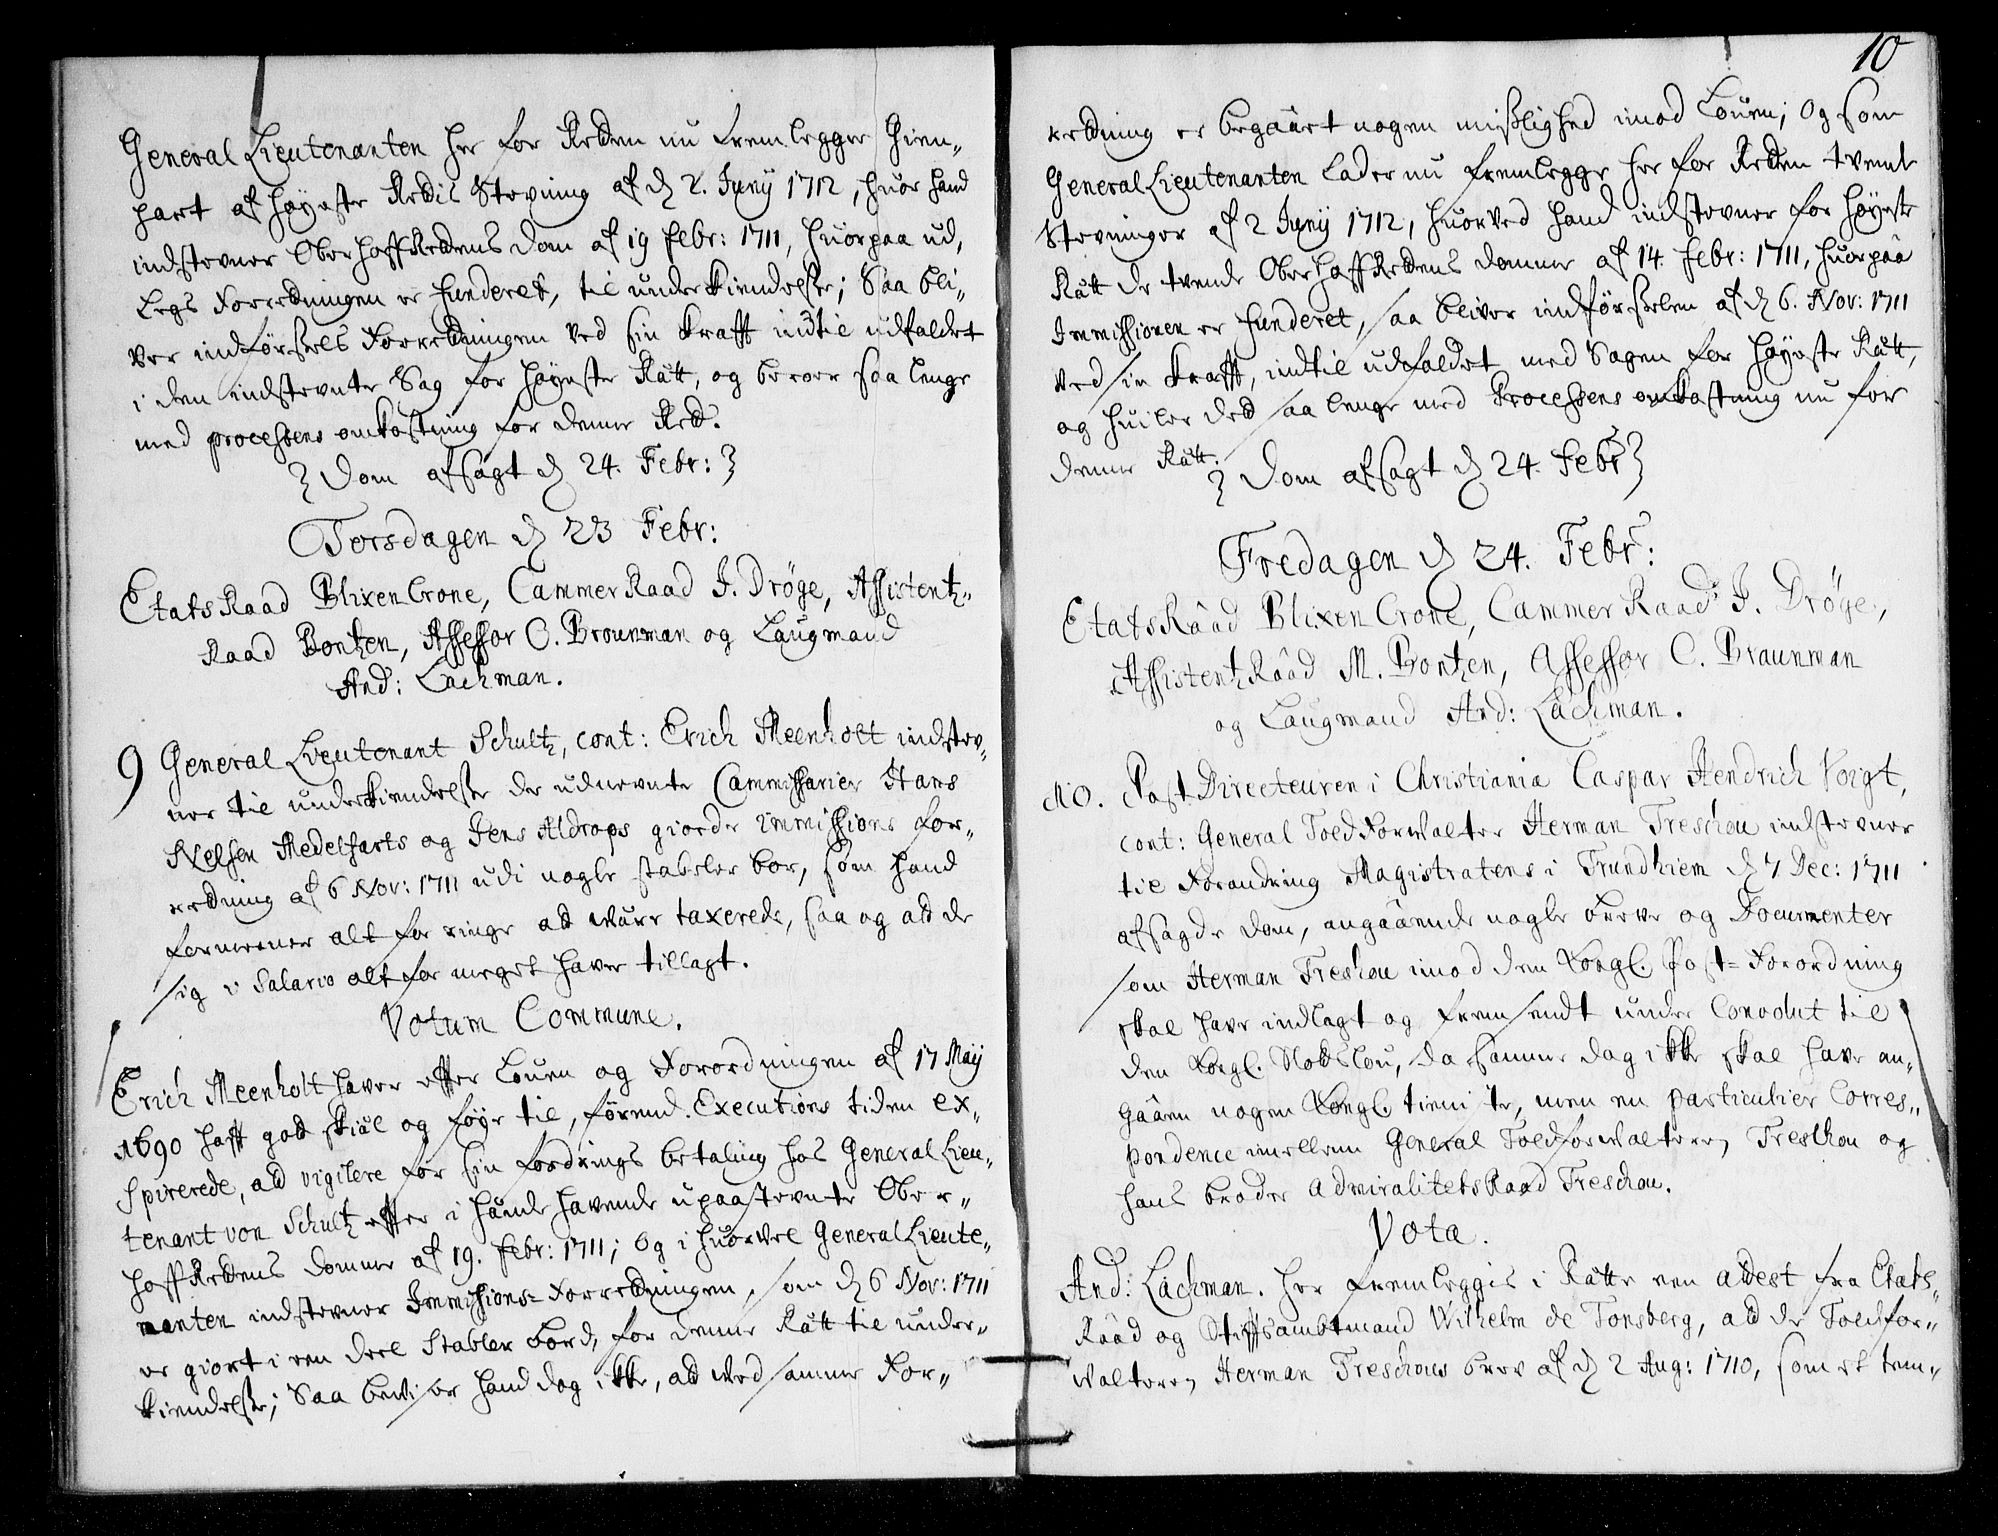 General Lieutenanten her for Retten nu fremlegger Gien-
part af høyeste Rettis Stevning af d 2. Junÿ 1712, huor hand
indstevner OberhoffRettens dom af 19 febr: 1711, huorpaa ud,
Legs Forretningen er funderet, til underkiendelse; Saa bli-
ver indførsels Forretningen ved sin krafft indtil udfaldet
i den indstevnte Sag for høyeste Rätt, og beroer saa lenge
med processens omkostning for denne Rett.
} Dom afsagt d 24. Febr: }
Torsdagen d 23 Febr:
EtatsRaad BlixenCrone, CammerRaad J. Drøge, Assistentz-
Raad Bontzen, Assessor C. Braunman og Laugmand
And: Lachman.
9 General Lieutenant Schultz, cont: Erich Meenholt indstev-
ner til underkiendelse de udnevnte Commissarier Hans
Nelsen Medelfarts og Jens Aldrops giorde immissions for-
retning af 6 Nov: 1711 udi nogle stabeler bor, som hand
formeener alt for ringe at være taxerede, saa og at de
sig i Salario alt for meget haver tillagt.
Votum Commune.
Erich Meenholt haver effter Louen og Forordningen af 17 Maÿ
1690 hafft god skiäl og føye til, førend Executions tiden ex-
spirerede, at vigilere for sin fordrings betaling hos General Lieu-
tenant von Schultz effter i hænde havende upaastevnte Ober-
hoffRettens domme af 19. febr: 1711; Og i huorvel General Lieute-
nanten indstevner Immissions-Forretningen, som d 6 Nov: 1711
er giort i een deel Stabler Bord, for denne Rätt til under-
kiendelse; Saa beviser hand dog ikke, at ved samme For-
10
retning er begäart nogen misslighed imod Louen; Og som
General Lieutenanten Lader nu fremlegge her for Retten tvende
Stevninger af 2 Junÿ 1712, huorved hand indstevner for høyeste
Rätt de tvende OberhoffRettens domme af 14. febr: 1711, huorpäa
Immissionen er funderet, saa bliver indførselen af d 6. Nov: 1711
ved sin krafft, indtil udfaldet med Sagen for høyeste Rätt,
og huiler det saa lenge med Processens omkostning nu for
denne Rätt.
} Dom afsagt d 24. Febr }
Fredagen d 24. Febr:
EtatsRäad Blixen Crone, Cammer Raad J. Drøge,
AssistentzRäad M. Bontzen, Assessor C. Braunman
og Laugmand And: Lachman.
N10. PostDirecteuren i Christiania Caspar Hendrich Voigt,
cont: General ToldForvalter Herman Treschou indstevner
til Forandring Magistratens i Trundhiem d 7 Dec: 1711
afsagde dom, angäaende nogle breve og Documenter
som Herman Treschou imod den Kongl. Post-Forordning
skal have indlagt og fremsendt under Convolut til
den Kongl. Slotslou, da samme dog ikke skal have an-
gäaen nogen Kongl. tieniste, men en particulier Corres-
pondence imellem General Toldforvalteren Treschou og
hans broder AdmiralitetsRaad Treschou.
Vota.
And: Lachman. her fremleggis i Rätte een attest fra Etats-
Räad og Stifftsambtmand Wilhelm de Tonsberg, at de Toldfor-
valteren Herman Treschous brev af d 2 Aug: 1710, som et tem-